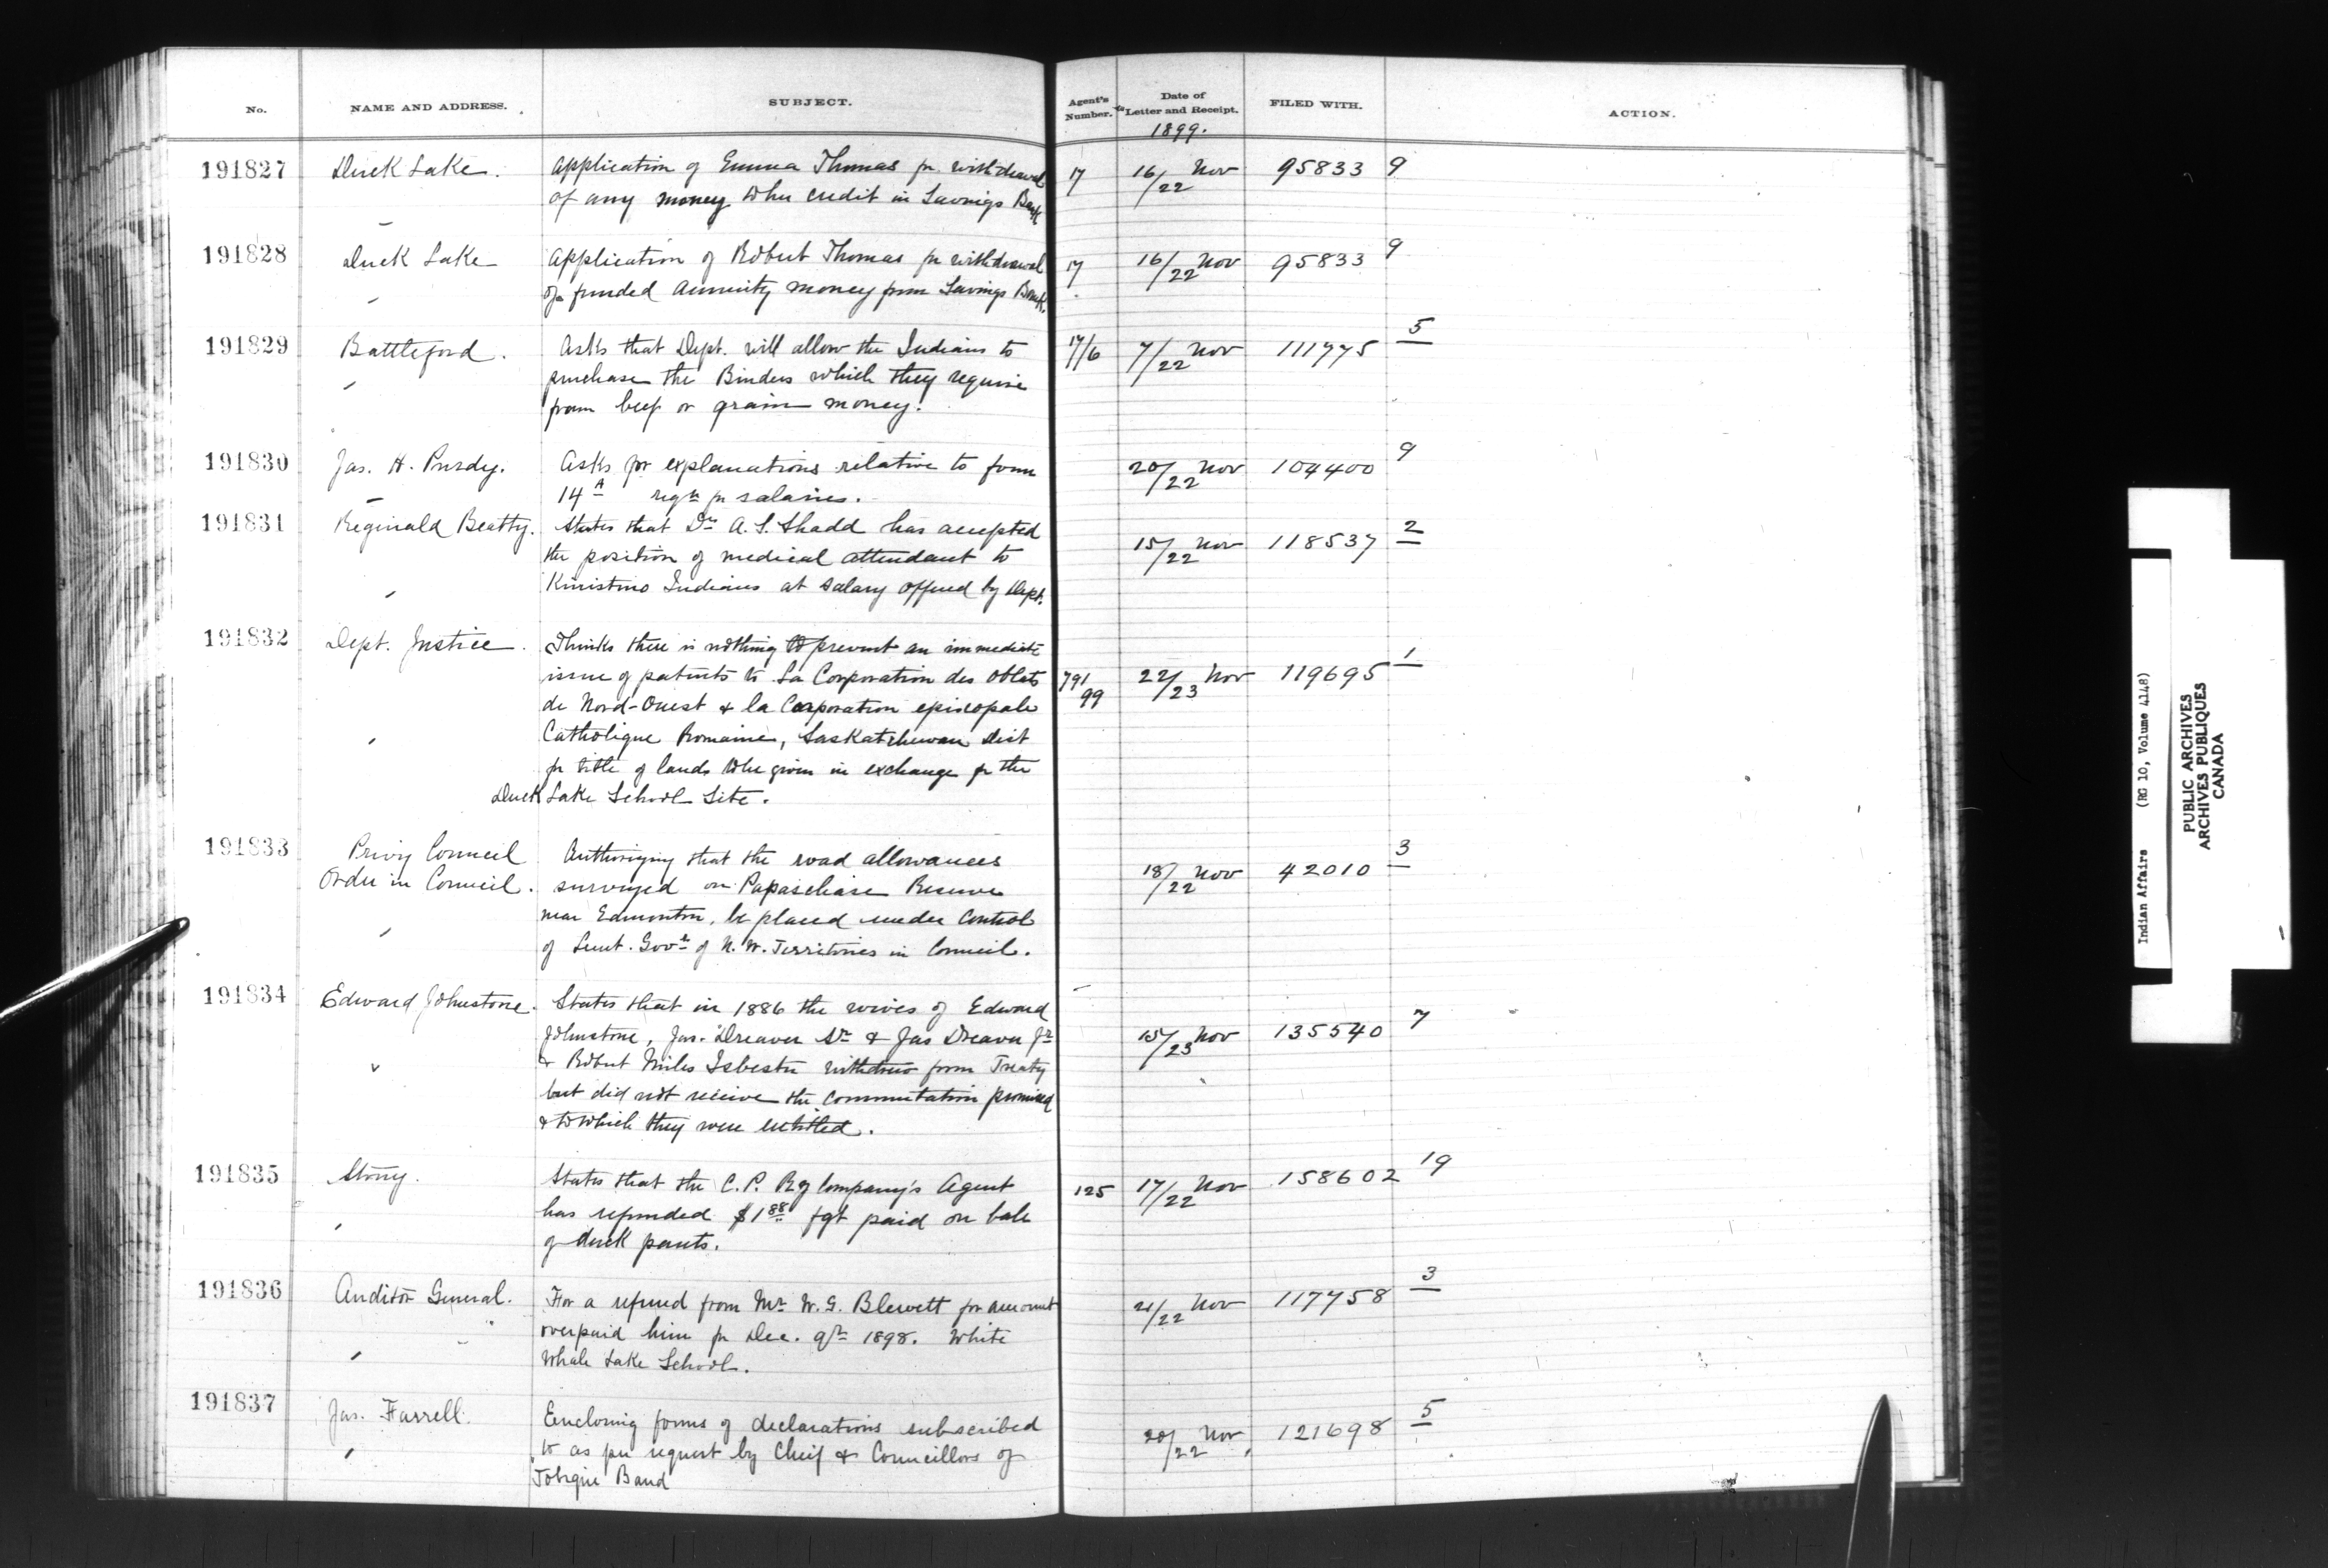 No. NAME AND ADDRESS. SUBJECT. Agent's Number. Date of Letter and Receipt. FILED WITH. ACTION.
1899.
191827 Duck Lake. Application of Emma Thomas for withdrawal 17 16/22 Nov 95833 9
of any money to her credit in Savings Bank
191828 Duck Lake Application of Robert Thomas for withdrawal 17 16/22 Nov 95833 9
of funded annuity money from Savings Bank.
191829 Battleford. Asks that Dept. will allow the Indians to 17/6 7/22 Nov 111775 5
purchase the Binders which they require
from beef or grain money.
191830 Jas. H. Purdy. Asks for explanations relative to form 20/22 Nov 104400 9
14 A for salaries.
191831 Reginald Beatty. States that Dr A. S. Shadd has accepted 15/22 Nov 118537 2
the position of medical attendant to
Kinistino Indians at salary offered by Dept.
191832 Dept. Justice. Thinks there is nothing to prevent an immediate
issue of patents to La Corporation des Oblats 791/99 22/23 Nov 119695 1
de Nord-Ouest & la Corporation episcopale
Catholique Romaine, Saskatchewan Dist
for title of lands to be given in exchange for the
Duck Lake School Site.
191833 Privy Council Authorizing that the road allowances 18/22 Nov 42010 3
Order in Council. surveyed on Papaschase Reserve
near Edmonton, be placed under control
of Lieut. Govr of N. W. Territories in Council.
191834 Edward Johnstone. States that in 1886 the wives of Edward
Johnstone, Jas. Dreaver Sr & Jas Dreaver Jr 15/23 Nov 135540 7
& Robert Miles Isbester withdrew from Treaty
but did not receive the commutation promised
& to which they were entitled.
191835 Stony. States that the C. P. Ry Company's Agent 125 17/22 Nov 158602 19
has refunded $1 88 fgt paid on bale
of duck pants.
191836 Auditor General. For a refund from Mr W. G. Blewett for amount 21/22 Nov 117758 3
overpaid him for Dec. qr 1898. White
Whale Lake School.
191837 Jas. Farrell. Enclosing forms of declarations subscribed 20/22 Nov 121698 5
to as per request by Chief & Councillors of
Tobique Band
Indian Affairs (RG 10, Volume 4148)
PUBLIC ARCHIVES
ARCHIVES PUBLIQUES
CANADA